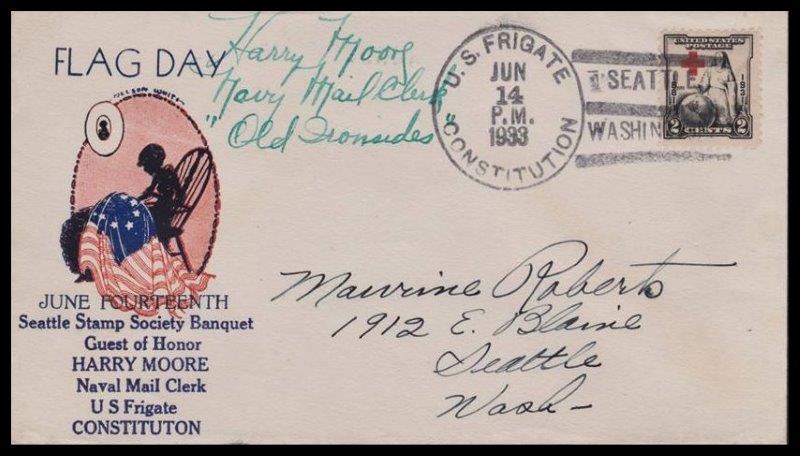 FLAG DAY
NELSON WHITE
Harry Moore
Navy Mail Clerk
"Old Ironsides"
U.S. FRIGATE
JUN
14
P.M.
1933
CONSTITUTION
SEATTLE
WASHIN
UNITED STATES
POSTAGE
1881
1931
2 CENTS 2
JUNE FOURTEENTH
Seattle Stamp Society Banquet
Guest of Honor
HARRY MOORE
Naval Mail Clerk
U S Frigate
CONSTITUTON
Maurine Roberts
1912 E. Blaine
Seattle
Wash-